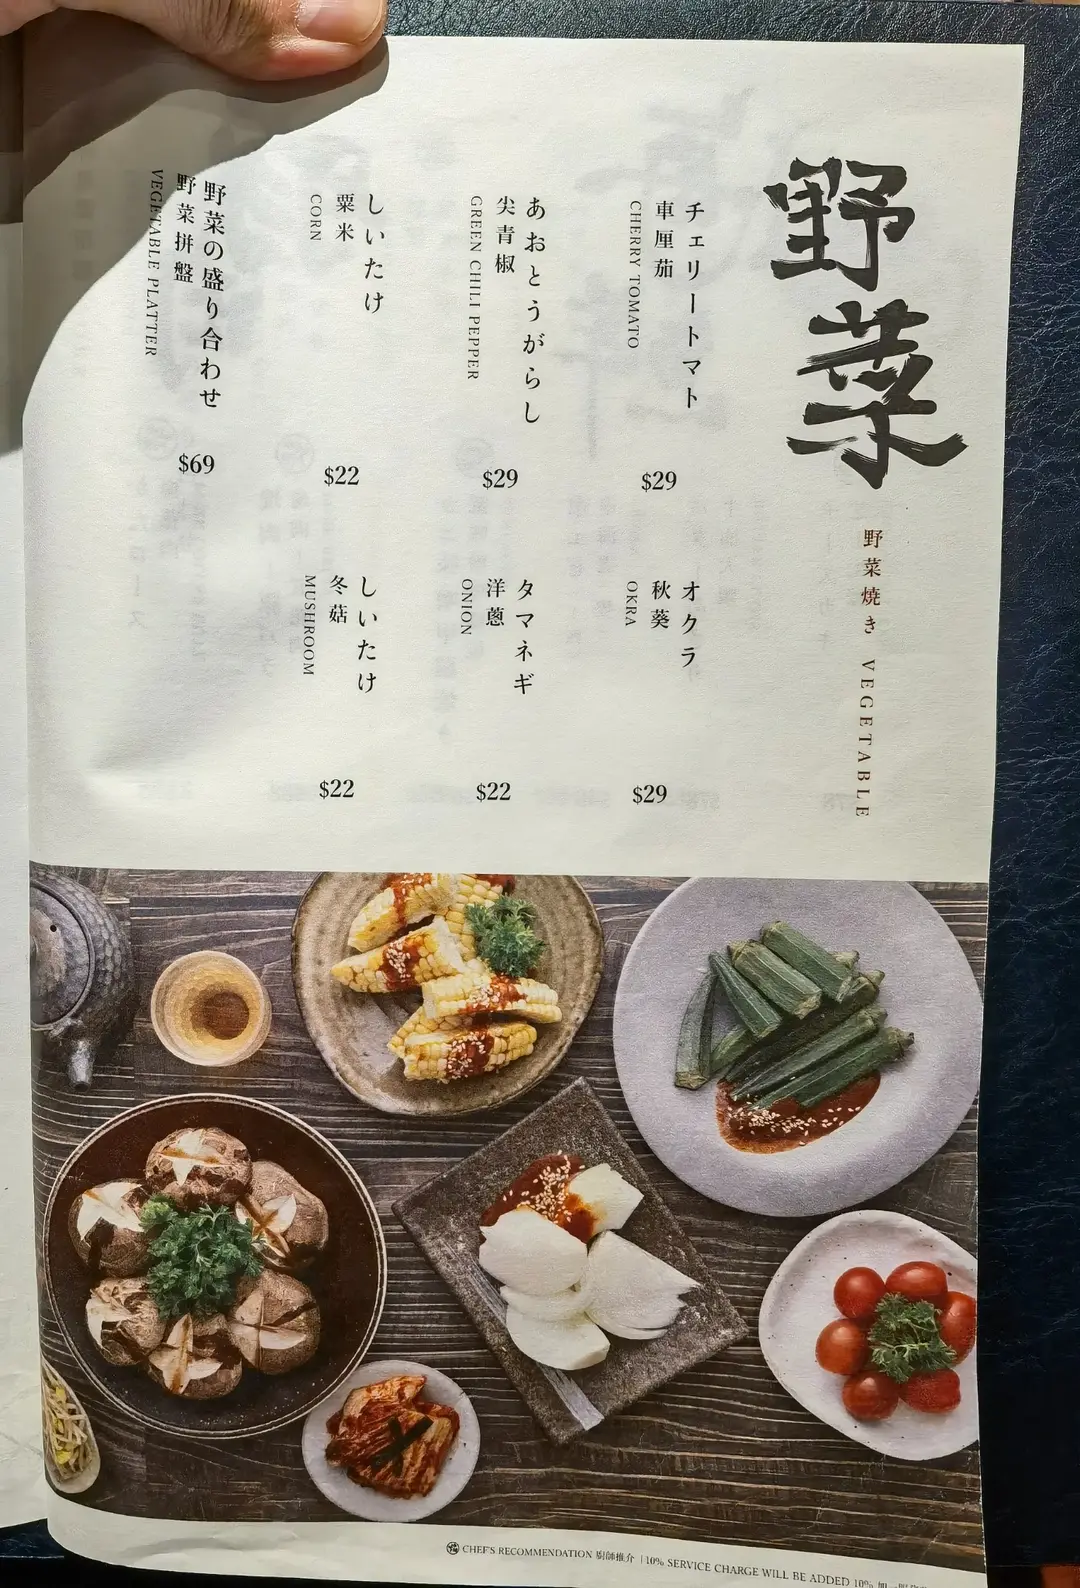 野菜
野菜焼き VEGETABLE
チェリートマト
車厘茄
CHERRY TOMATO
$29
オクラ
秋葵
OKRA
$29
あおとうがらし
尖青椒
GREEN CHILI PEPPER
$29
タマネギ
洋蔥
ONION
$22
しいたけ
粟米
CORN
$22
しいたけ
冬菇
MUSHROOM
$22
野菜の盛り合わせ
野菜拼盤
VEGETABLE PLATTER
$69
CHEF'S RECOMMENDATION 廚師推介 | 10% SERVICE CHARGE WILL BE ADDED 10% 加一服